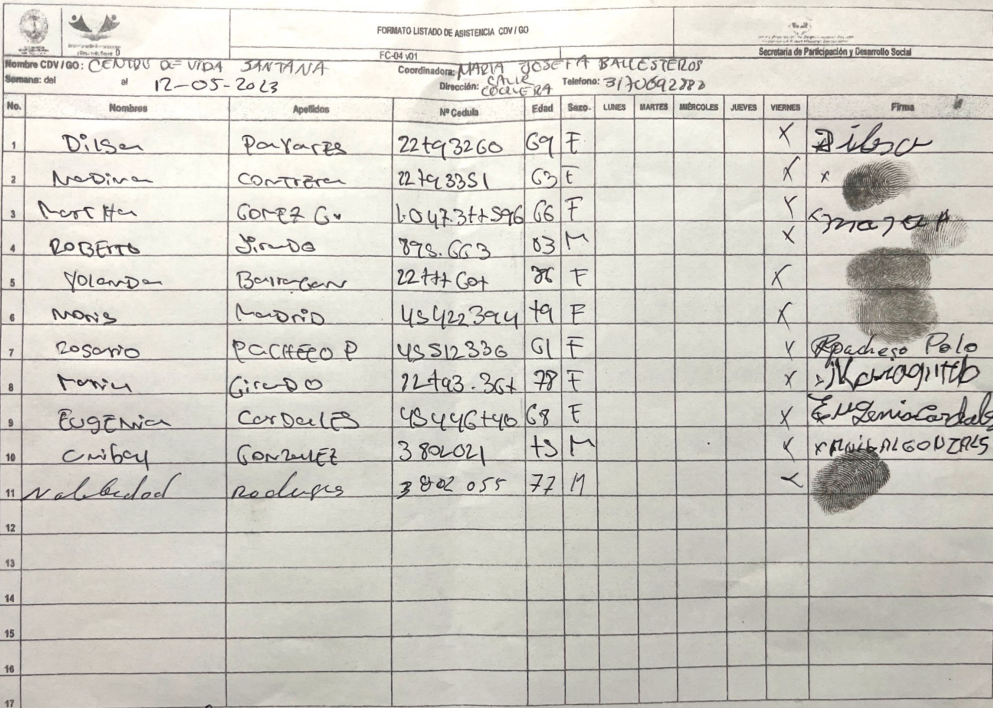 FORMATO LISTADO DE ASISTENCIA CDV / GO
FC-04 v01
Secretaría de Participación y Desarrollo Social
Nombre CDV / GO: CENTRO DE VIDA SANTANA Coordinadora: MARIA JOSEFA BALLESTEROS
Semana: del al 12-05-2023 Dirección: CALLE Telefono: 3170692882
No. Nombres Apellidos Nº Cedula Edad Sexo. LUNES MARTES MIÉRCOLES JUEVES VIERNES Firma
1 Dilsa Payares 22793260 69 F X Dilsa
2 Nadina CONTRERA 22793351 63 F X x
3 Martha GOMEZ G. 1.047.377596 66 F X
4 ROBERTO Jirado 895.663 83 M X
5 Yolanda Barragan 22777607 76 F X
6 Moris Madrid 45422394 79 F X
7 Rosario PACHECO P 45512336 61 F X Rpacheso Polo
8 Maria GiraDO 22793.367 78 F X
9 EUGENia CarDales 45446740 68 F X EuGeniaCardales
10 Anibay GONZALEZ 3802021 73 M X x ANIBALGONZALS
11 3802 055 77 M X
12
13
14
15
16
17